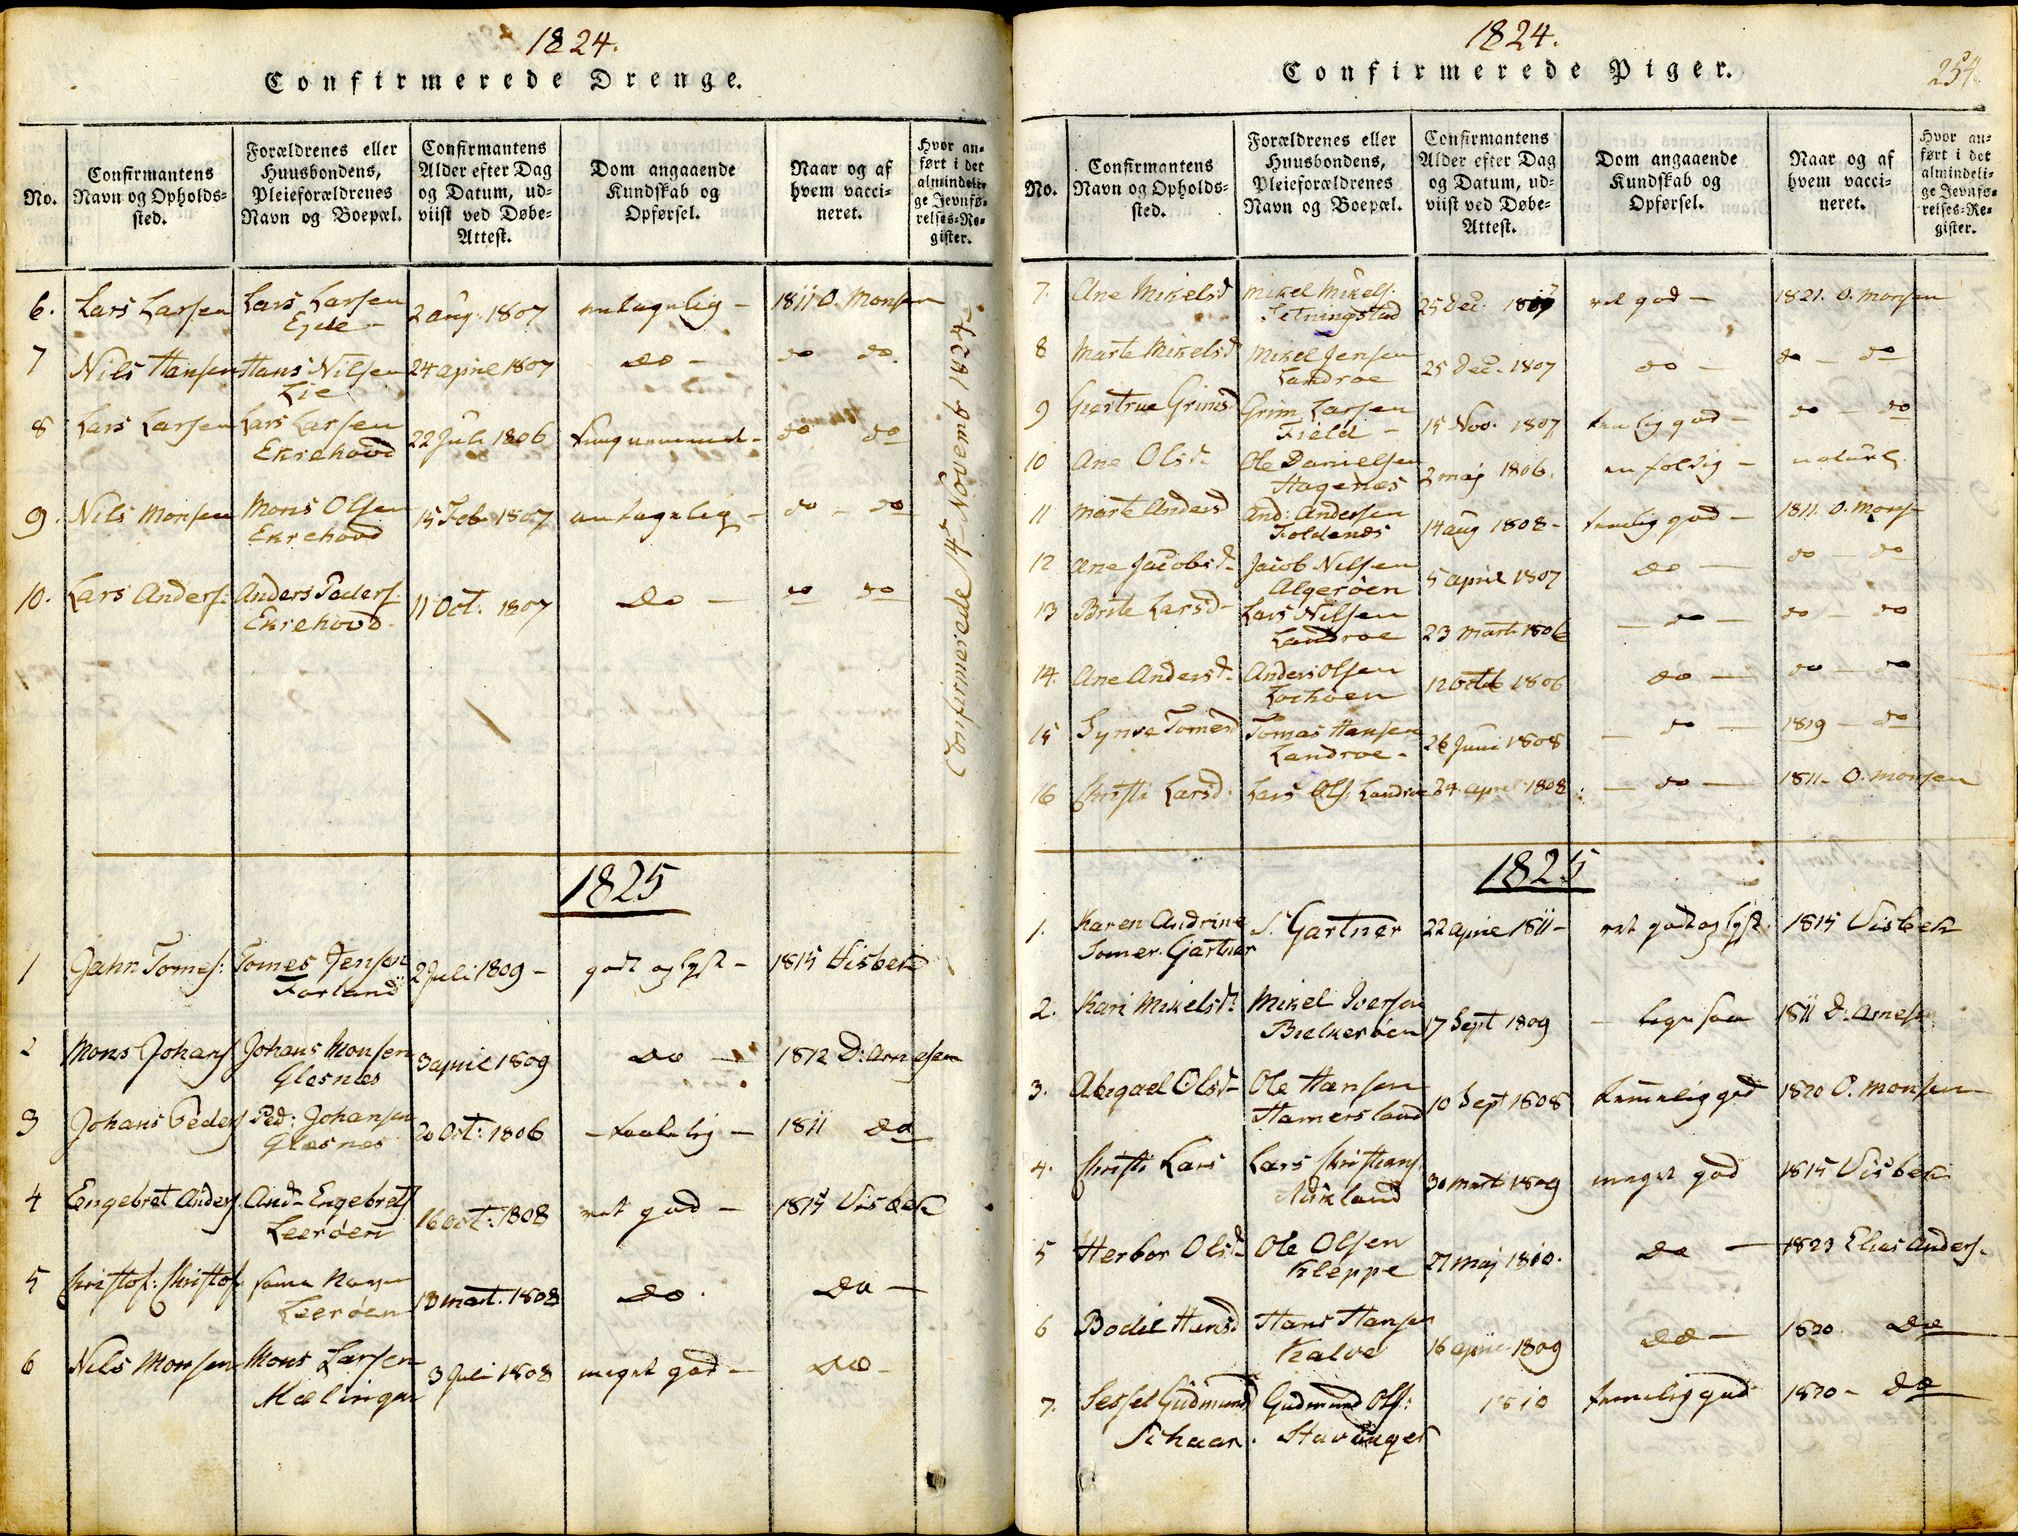 1824.
Confirmerede Drenge.
No.
Confirmantens
Navn og Opholds-
sted.
Forældrenes eller
Huusbondens,
Pleieforældrenes
Navn og Boepæl.
Confirmantens
Alder efter Dag
og Datum, ud-
viist ved Døbe-
Attest.
Dom angaaende
Kundskab og
Opførsel.
Naar og af
hvem vacci-
neret.
Hvor an-
ført i det
almindeli-
ge Jevnfø-
relses-Re-
gister.
6. Lars Larsen Lars Larsen 2 aug. 1807 antagelig - 1811 O. Monsen
Egde -
7 Nils Hansen Hans Nilsen 24 april 1807 do - do do.
Lie
8 Lars Larsen Lars Larsen 22 Juli 1806 tungnemmet - do do
Ekrehovd
9. Nils Monsen Mons Olsen 15 Feb. 1807 antagelig - do - do
Ekrehovd
10. Lars Anders: Anders Peders. 11 Oct. 1807 do - do do
Ekrehovd.
Confirmerede 14de Novemb 1824.
1825
1 Jahn Tomes: Tomes Jensen 2 Juli 1809 - godt og lyst - 1815 Visbek
Forland
2 Mons Johans Johans Monsen 3 april 1809 do - 1812 D: Arnesen
Glesnes
3 Johans Peders Ped: Johansen 20 Oct: 1806 - taalelig - 1811 do
Glesnes
4 Engebret Anders. And. Engebrets 16 oct: 1808 ret god - 1815 Visbek
Leerøen
5 Christof: Christof. samme Navn 13 mart. 1808 do. do -
Leerøen
6 Nils Monsen Mons Larsen 3 Juli 1808 meget god - do -
Kælingen
1824.
254.
Confirmerede Piger.
No.
Confirmantens
Navn og Opholds-
sted.
Forældrenes eller
Huusbondens,
Pleieforældrenes
Navn og Boepæl.
Confirmantens
Alder efter Dag
og Datum, ud-
viist ved Døbe-
Attest.
Dom angaaende
Kundskab og
Opførsel.
Naar og af
hvem vacci-
neret.
Hvor an-
ført i det
almindeli-
ge Jevnfø-
relses-Re-
gister.
7. Ane Mikelsd Mikel Mikels. 25 Dec. 1807 ret god - 1821. O. Monsen
Tetningstad
8 Marte Mikelsd Mikel Jensen 25 Dec. 1807 do - do - do
Landroe
9 Giertrue Grimsd Grim Larsen 15 Nov. 1807 temlig god - do - do
Field -
10 Ane Olsd. Ole Danielsen 2 maj 1806. enfoldig - naturl.
Hagenæs
11 Marte Andersd And: Andersen 14 aug 1808 - temelig god - 1811. O. Mons
Toldnæs
12 Ane Jacobsd. Jacob Nilsen 5 april 1807 do - do - do
Algerøen
13 Brite Larsd - Lars Nilsen 23 Mart 1806 - do - do - do
Landroe
14. Ane Andersd. Anders Olsen 12 octob 1806 do - do - do
Lochøen
15 Synve Tomesd Tomas Hansen 26 Juni 1808 - do - 1819 - do
Landroe -
16 Christi Larsd. Lars Ols: Landroe 24 april 1808. - do - 1811 - O. Monsen
1825
1. Karen Andrine S. Gartner 22 april 1811 - ret godt og lyst. 1815 Visbek
Tomer. Gartner
2. Kari Mikelsd: Mikel Iversen 17 Sept 1809 - ligesaa 1811 D. Arnesen
Bielkerøen
3. Abegael Olsd - Ole Hansen 10 Sept 1808 temmelig god 1820 O. Monsen
Hamersland
4. Christi Lars Lars Christians. 30 mart 1809 meget god 1815 Visbek
Aukland
5 Herbor Olsd - Ole Olsen 27 maj 1810. do - 1823 Elias Anders.
Kleppe
6 Bodil Hansd Hans Hansen 16 april 1809 do - 1820. do
Kalve
7. Sessel Gudmund Gudmund Ols: 1810 temelig god 1820 - do
Schaar. Stavanger